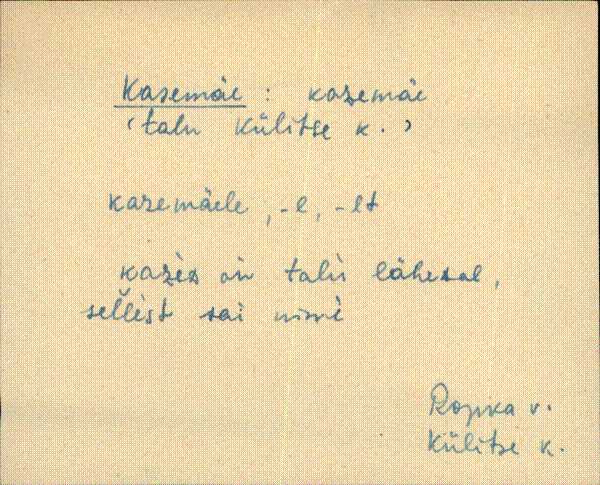 Kasemäe : kazemäe
(talu Külitse k.)
kazemäele, -l, -lt
kaziz on talu lähezal,
sellest sai nimi
Ropka v.
Külitse k.